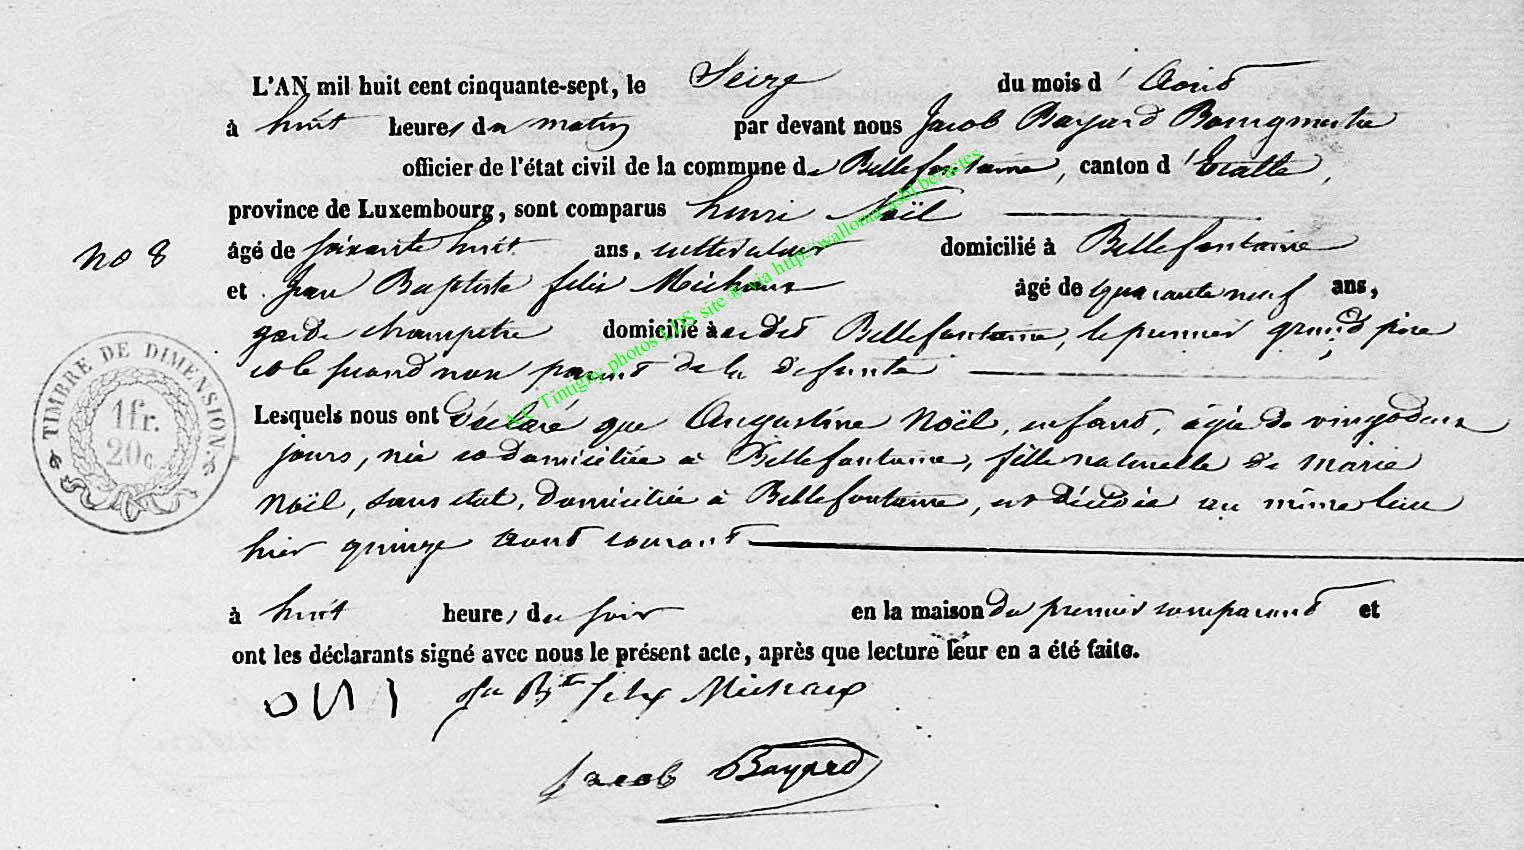 L'AN mil huit cent cinquante-sept, le Seize du mois d'Aout
à huit heures du matin par devant nous Jacob Bayard Bourgmestre
officier de l'état civil de la commune de Bellefontaine, canton d'Etalle,
province de Luxembourg, sont comparus henri Noël
No 8
âgé de soixante huit ans, cultivateur domicilié à Bellefontaine
et Jean Baptiste felix Michaux âgé de quarante neuf ans,
garde champetre domicilié à Bellefontaine, le premier grand père
et le second non parent de la défunte
TIMBRE DE DIMENSION
1 fr.
20 c.
Lesquels nous ont déclaré que Augustine Noël, enfant, agée de vingt deux
jours, née et domiciliée à Bellefontaine, fille naturelle de marie
Noël, sans état, domiciliée à Bellefontaine, est décédée au même lieu
hier quinze aout courant
à huit heures du soir en la maison du premier comparant et
ont les déclarants signé avec nous le présent acte, après que lecture leur en a été faite.
Jn Bte felix Michaux
Jacob Bayard
A.E. Tintigny photos LDS site ® via http://wallonica.ashi.be/actes